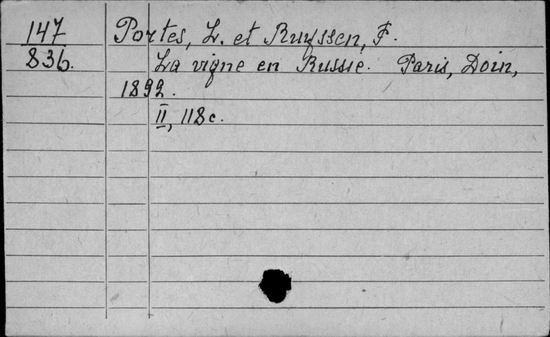 147
836.
Portes, L. et Ruyssen, F.
La vigne en Russie. Paris, Doin,
1892.
II, 118 c.